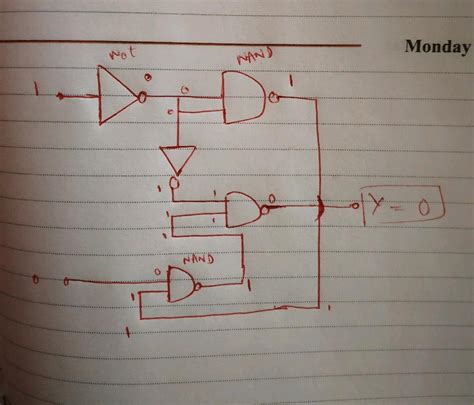 Monday
Not
NAND
1
0
0
1
0
1
1
0
1
1
1
Y = 0
NAND
0
0
1
1
1
1